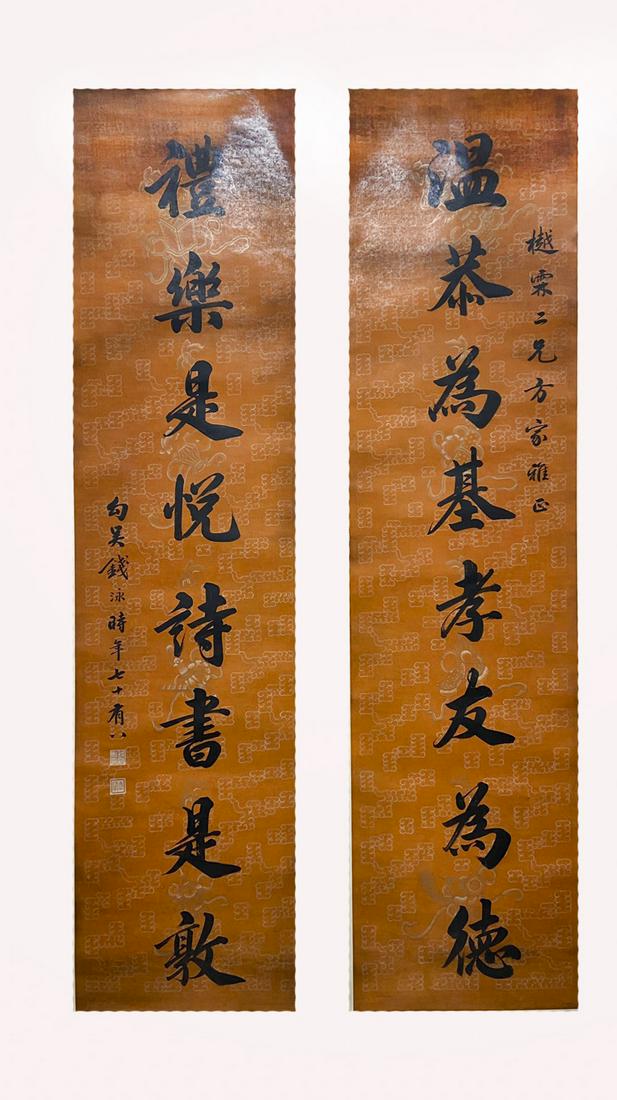 樾霖二兄方家雅正
温恭為基孝友為德
禮樂是悦詩書是敦
勾吴錢泳時年七十有八